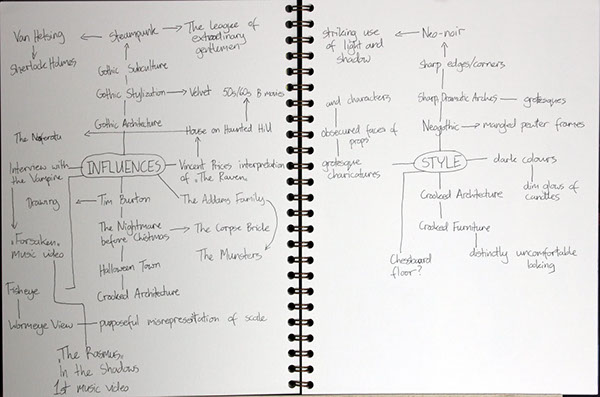 Van Helsing
Steampunk
The league of
extraordinary
gentlemen
Sherlock Holmes
Gothic Subculture
Gothic Stylization
Velvet
50s/60s B movies
Gothic Architecture
The Nosferatu
House on Haunted Hill
Interview with
the Vampire
INFLUENCES
Vincent Prices interpretation
of "The Raven"
Drawing
Tim Burton
The Addams Family
"Forsaken"
Music video
The Nightmare
before Christmas
The Corpse Bride
The Munsters
Halloween Town
Fisheye
Crooked Architecture
Wormeye View
purposeful misrepresentation of scale
"The Rasmus"
In the Shadows
1st music video
striking use
of light and
shadow
Neo-noir
Sharp edges/corners
and characters
Sharp Dramatic Arches
grotesques
obscured faces of
props
Neogothic
mangled pewter frames
grotesque
charicatures
STYLE
dark colours
dim glows of
candles
Crooked Architecture
Crooked Furniture
Chessboard
floor?
distinctly uncomfortable
looking